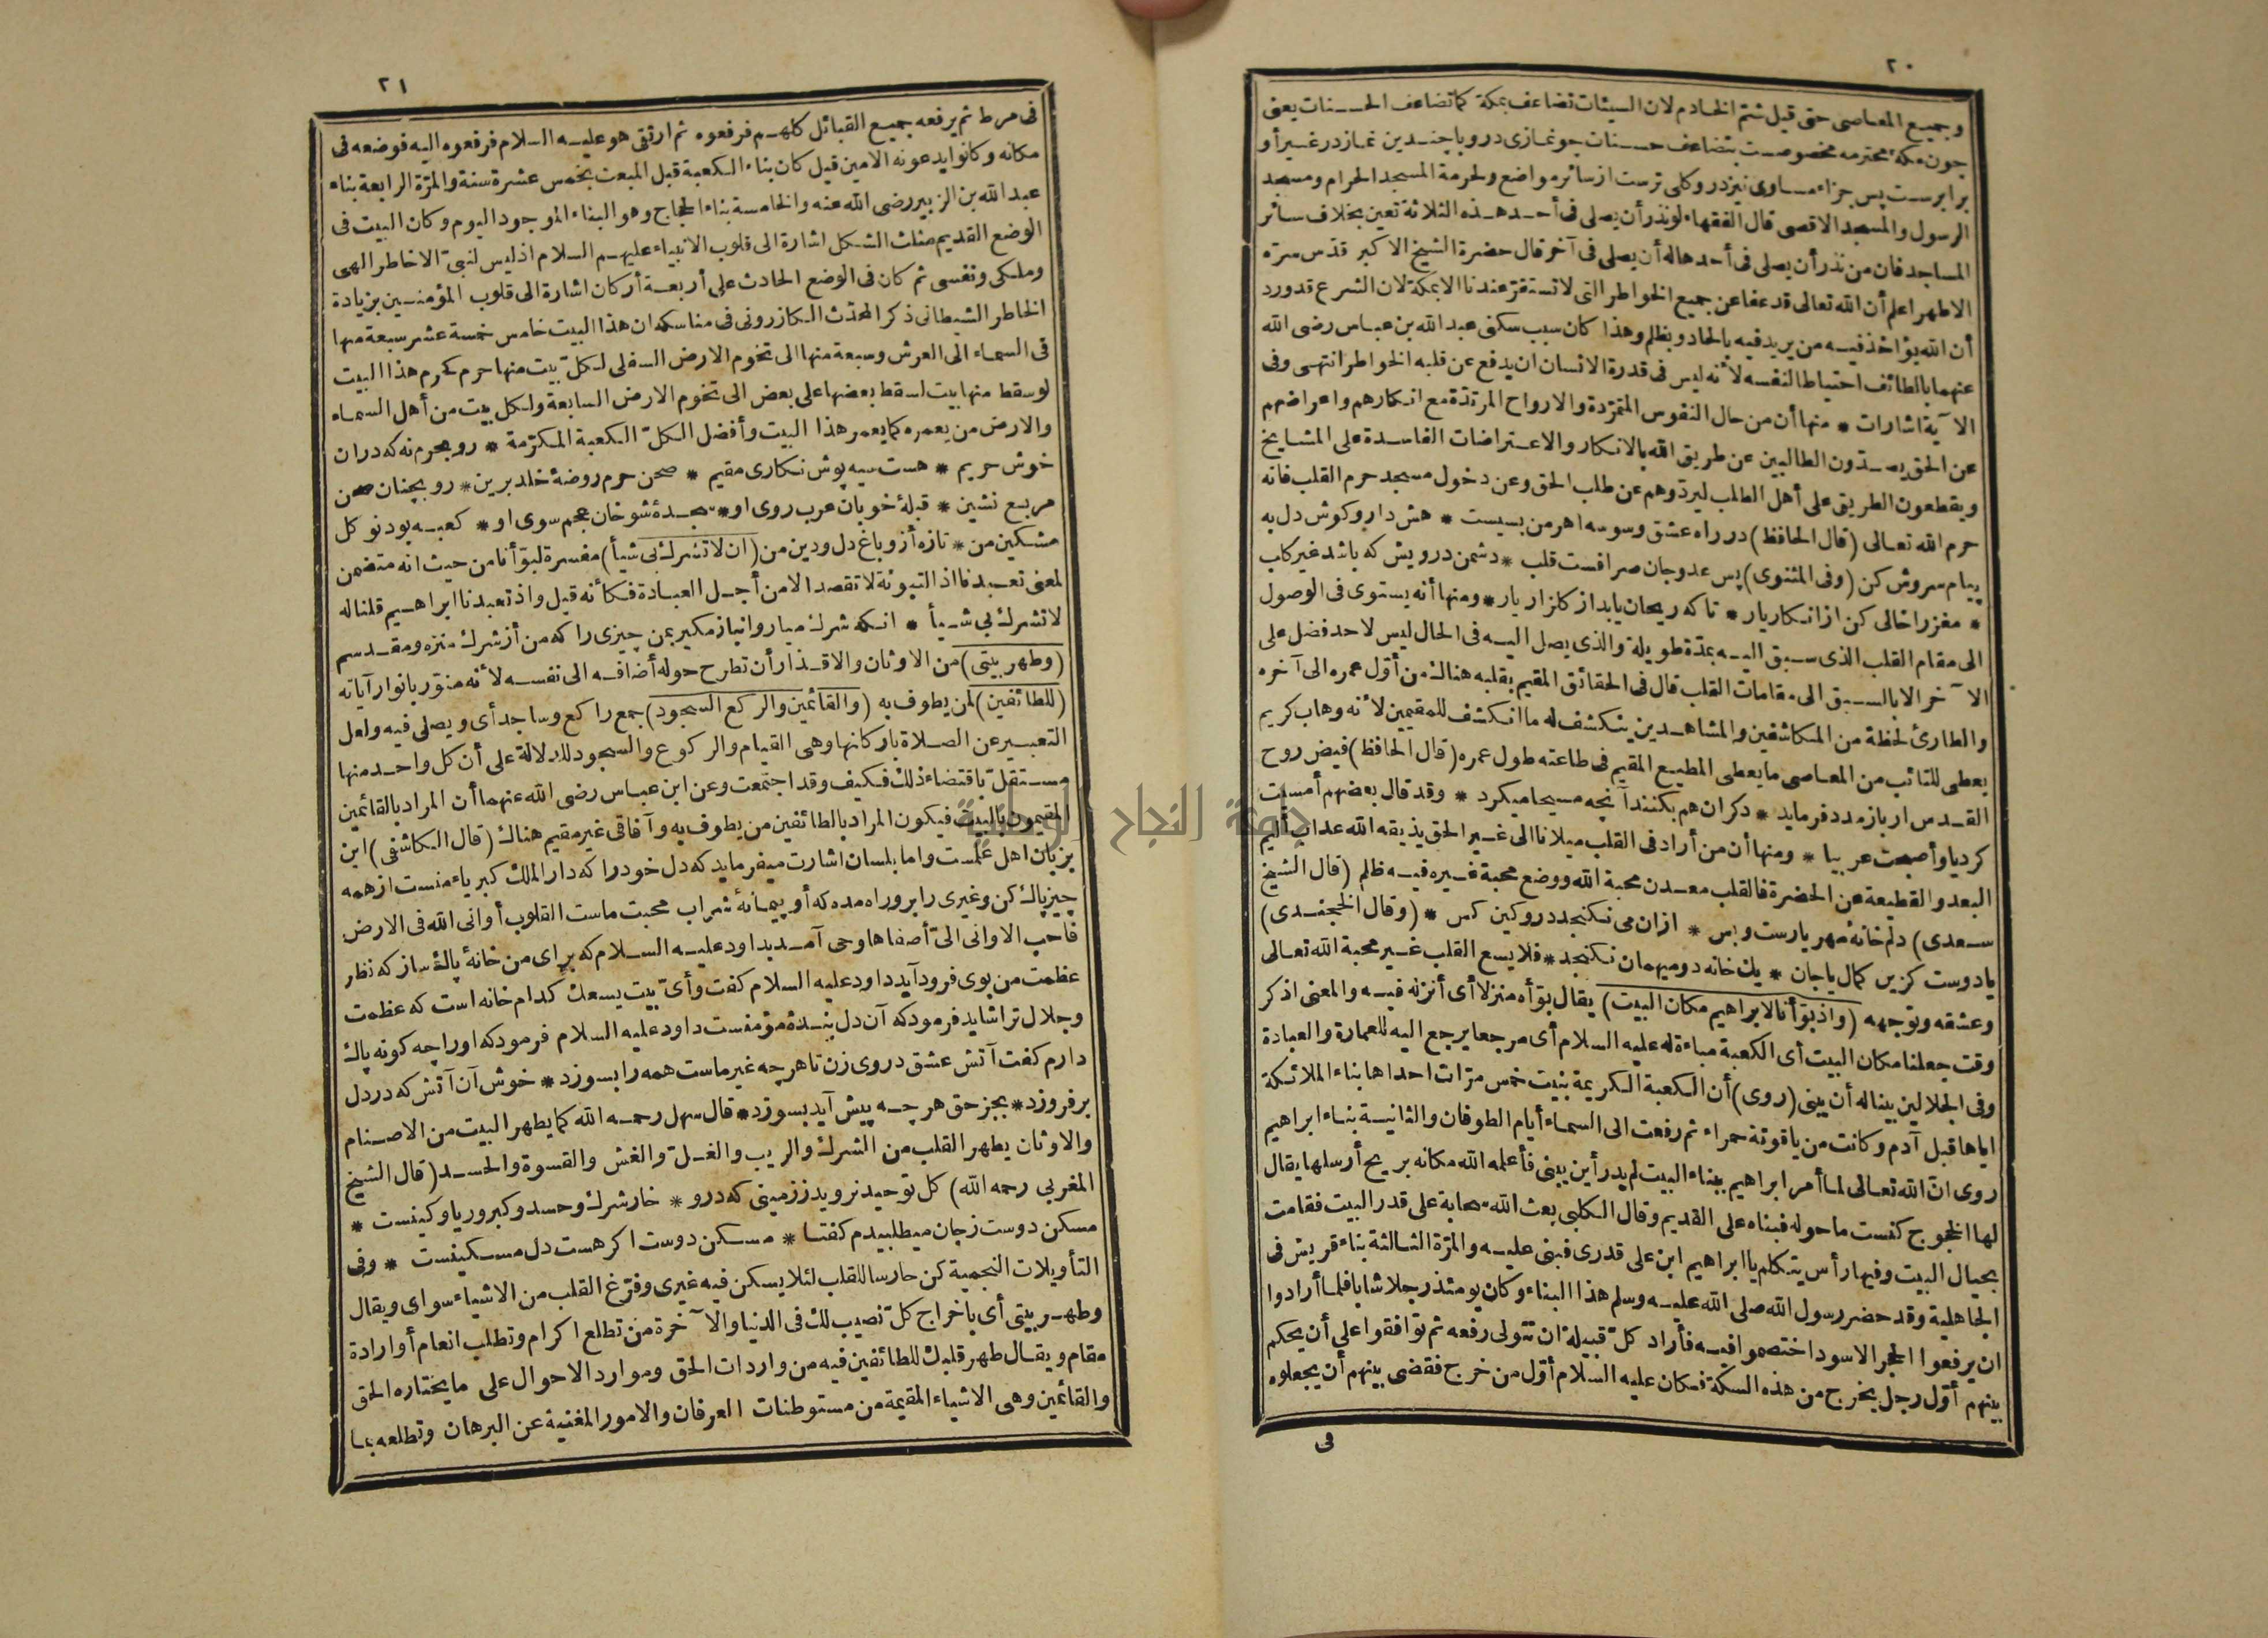 ٢٠
وجميع المعاصى حتى قيل شتم الخادم لان السيئات تضاعف بمكة كما تضاعف الحسنات يعنى
جون مكهٔ محترمه مخصوصست بتضاعف حسنات جو نمازى درو باجندين نماز در غير او
برابرست پس جزاء مساوى نيز درو كلى ترست از سائر مواضع ولحرمة المسجد الحرام ومسجد
الرسول والمسجد الاقصى قال الفقهاء لو نذر أن يصلى فى أحد هذه الثلاثة تعين بخلاف سائر
المساجد فان من نذر أن يصلى فى أحدها له أن يصلى فى آخر قال حضرة الشيخ الاكبر قدّس سرّه
الاطهر اعلم أن الله تعالى قد عفا عن جميع الخواطر التى لا تستقرّ عندنا الا بمكة لان الشرع قد ورد
أن الله يؤاخذ فيه من يريد فيه بالحاد وبظلم وهذا كان سبب سكنى عبد الله بن عباس رضى الله
عنهما بالطائف احتياطا لنفسه لأنه ليس فى قدرة الانسان ان يدفع عن قلبه الخواطر انتهى وفى
الآية اشارات * منها أن من حال النفوس المتمرّدة والارواح المرتدّة مع انكارهم واعراضهم
عن الحق يصدّون الطالبين عن طريق الله بالانكار والاعتراضات الفاسدة على المشايخ
ويقطعون الطريق على أهل الطلب ليردّوهم عن طلب الحق وعن دخول مسجد حرم القلب فانه
حرم الله تعالى (قال الحافظ) در راه عشق وسوسه اهرمن بسيست * هش دار وكوش دل به
پيام سروش كن (وفى المثنوى) پس عدو جان صرافست قلب * دشمن درويش كه باشد غير كلب
* مغز را خالى كن از انكار يار * تا كه ريحان يابد از كلزار يار * ومنها أنه يستوى فى الوصول
الى مقام القلب الذى سبق اليه بمدّة طويلة والذى يصل اليه فى الحال ليس لاحد فضل على
الآخر الا بالسبق الى مقامات القلب قال فى الحقائق المقيم بقلبه هناك من أوّل عمره الى آخره
والطارئ لحظة من المكاشفين والمشاهدين ينكشف له ما انكشف للمقيمين لأنه وهاب كريم
يعطى للتائب من المعاصى ما يعطى المطيع المقيم فى طاعته طول عمره (قال الحافظ) فيض روح
القدس ار باز مدد فرمايد * دكران هم بكنند آنچه مسيحا ميكرد * وقد قال بعضهم أمسيت
كرديا وأصبحت عربيا * ومنها أن من أراد فى القلب ميلانا الى غير الحق يذيقه الله عذاب أليم
البعد والقطيعة عن الحضرة فالقلب معدن محبة الله ووضع محبة غيره فيه ظلم (قال الشيخ
سعدى) دلم خانهٔ مهر يارست وبس * ازان مى نكنجد درو كين كس * (وقال الخجندى)
با دوست كزين كمال يا جان * يك خانه دو ميهمان نكنجد * فلا يسع القلب غير محبة الله تعالى
وعشقه وتوجهه (واذ بوّأنا لابراهيم مكان البيت) يقال بوّأه منزلا أى أنزله فيه والمعنى اذكر
وقت جعلنا مكان البيت أى الكعبة مباءة له عليه السلام أى مرجعا يرجع اليه للعمارة والعبادة
وفى الجلالين بينا له أن يبنى (روى) أن الكعبة الكريمة بنيت خمس مرّات احداها بناء الملائكة
اياها قبل آدم وكانت من ياقوتة حمراء ثم رفعت الى السماء أيام الطوفان والثانية بناء ابراهيم
روى انّ الله تعالى لما أمر ابراهيم ببناء البيت لم يدر أين يبنى فأعلمه الله مكانه بريح أرسلها يقال
لها الخجوج كنست ما حوله فبناه على القديم وقال الكلبى بعث الله سحابة على قدر البيت فقامت
بحيال البيت وفيها رأس يتكلم يا ابراهيم ابن على قدرى فبنى عليه والمرّة الثالثة بناء قريش فى
الجاهلية وقد حضر رسول الله صلى الله عليه وسلم هذا البناء وكان يومئذ رجلا شابا فلما أرادوا
ان يرفعوا الحجر الاسود اختصموا فيه فأراد كلّ قبيلة ان تتولى رفعه ثم توافقوا على أن يحكم
بينهم أوّل رجل يخرج من هذه السكة فكان عليه السلام أوّل من خرج فقضى بينهم أن يجعلوه
فى
٢١
فى مرط ثم يرفعه جميع القبائل كلهم فرفعوه ثم ارتقى هو عليه السلام فرفعوه اليه فوضعه فى
مكانه وكانوا يدعونه الامين قيل كان بناء الكعبة قبل المبعث بخمس عشرة سنة والمرّة الرابعة بناء
عبد الله بن الزبير رضى الله عنه والخامسة بناء الحجاج وهو البناء الموجود اليوم وكان البيت فى
الوضع القديم مثلث الشكل اشارة الى قلوب الانبياء عليهم السلام اذ ليس لنبىّ الا خاطر الهى
وملكى ونفسى ثم كان فى الوضع الحادث على أربعة أركان اشارة الى قلوب المؤمنين بزيادة
الخاطر الشيطانى ذكر المحدّث الكازرونى فى مناسكه ان هذا البيت خامس خمسة عشر سبعة منها
فى السماء الى العرش وسبعة منها الى تخوم الارض السفلى لكلّ بيت منها حرم كحرم هذا البيت
لو سقط منها بيت لسقط بعضها على بعض الى تخوم الارض السابعة ولكل بيت من أهل السماء
والارض من يعمره كما يعمر هذا البيت وأفضل الكلّ الكعبة المكرّمة * رو بحرم نه كه دران
خوش حريم * هست سيه پوش نكارى مقيم * صحن حرم روضهٔ خلد برين * رو بچنان صحن
مربع نشين * قبلهٔ خوبان عرب روى او * سجدهٔ شوخان عجم سوى او * كعبه بود نو كل
مشكين من * تازه أزو باغ دل ودين من (ان لا تشرك بى شيأ) مفسرة لبوّأنا من حيث انه متضمن
لمعنى تعبدنا اذ التبوئة لا تقصد الا من أجل العبادة فكأنه قيل واذ تعبدنا ابراهيم قلنا له
لا تشرك بى شيأ * انكه شرك ميار وانباز مكير بمن چيزى را كه من أز شرك منزه ومقدسم
(وطهر بيتى) من الاوثان والاقذار أن تطرح حوله أضافه الى نفسه لأنه منوّر بانوار آياته
(للطائفين) لمن يطوف به (والقائمين والركع السجود) جمع راكع وساجد أى ويصلى فيه ولعل
التعبير عن الصلاة باركانها وهى القيام والركوع والسجود للدلالة على أن كل واحد منها
مستقلّ باقتضاء ذلك فكيف وقد اجتمعت وعن ابن عباس رضى الله عنهما أن المراد بالقائمين
المقيمون بالبيت فيكون المراد بالطائفين من يطوف به وآفاقى غير مقيم هناك (قال الكاشفى) اين
بزبان اهل علمست واما بلسان اشارت ميفرمايد كه دل خود را كه دار الملك كبرياء منست از همه
چيز پاك كن وغيرى را برو راه مده كه أو پيمانهٔ شراب محبت ماست القلوب أوانى الله فى الارض
فاحب الاوانى الىّ أصفاها وحى آمد بداود عليه السلام كه براى من خانهٔ پاك ساز كه نظر
عظمت من بوى فرود آيد داود عليه السلام كفت وأىّ بيت يسعك كدام خانه است كه عظمت
وجلال ترا شايد فرمود كه آن دل بندهٔ مؤمنست داود عليه السلام فرمود كه او را چه كونه پاك
دارم كفت آتش عشق در وى زن تا هر چه غير ماست همه را بسوزد * خوش آن آتش كه در دل
بر فروزد * بجز حق هر چه پيش آيد بسوزد * قال سهل رحمه الله كما يطهر البيت من الاصنام
والاوثان يطهر القلب من الشرك والريب والغلّ والغش والقسوة والحسد (قال الشيخ
المغربى رحمه الله) كل توحيد نرويد ز زمينى كه درو * خار شرك وحسد وكبر وريا وكينست *
مسكن دوست ز جان ميطلبيدم كفتا * مسكن دوست اكر هست دل مسكينست * وفى
التأويلات النجمية كن حارسا للقلب لئلا يسكن فيه غيرى وفرّغ القلب من الاشياء سواى ويقال
وطهر بيتى أى باخراج كلّ نصيب لك فى الدنيا والآخرة من تطلع اكرام وتطلب انعام أو ارادة
مقام ويقال طهر قلبك للطائفين فيه من واردات الحق وموارد الاحوال على ما يختاره الحق
والقائمين وهى الاشياء المقيمة من مستوطنات العرفان والامور المغنية عن البرهان وتطلعه بما
جامعة النجاح الوطنية